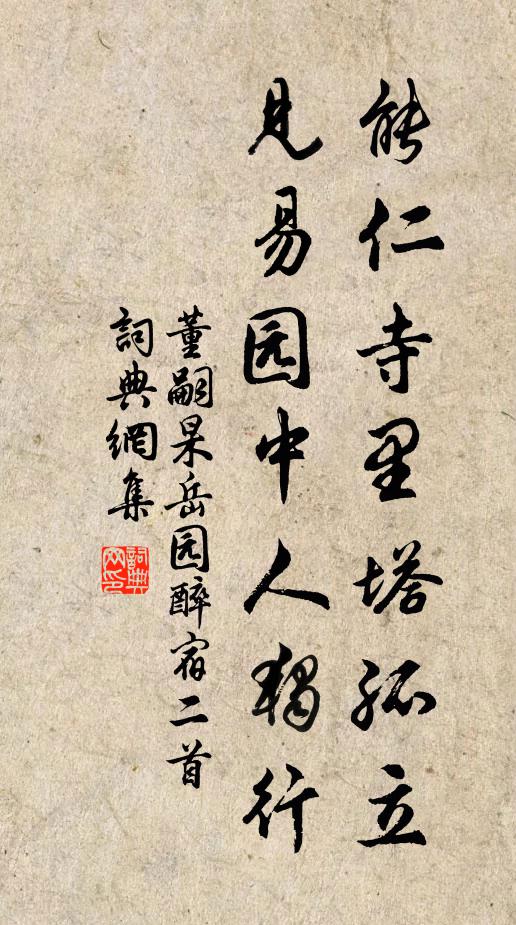 能仁寺里塔孤立
見易园中人獨行
董嗣杲岳园醉宿二首
詞典網集
詞典網印